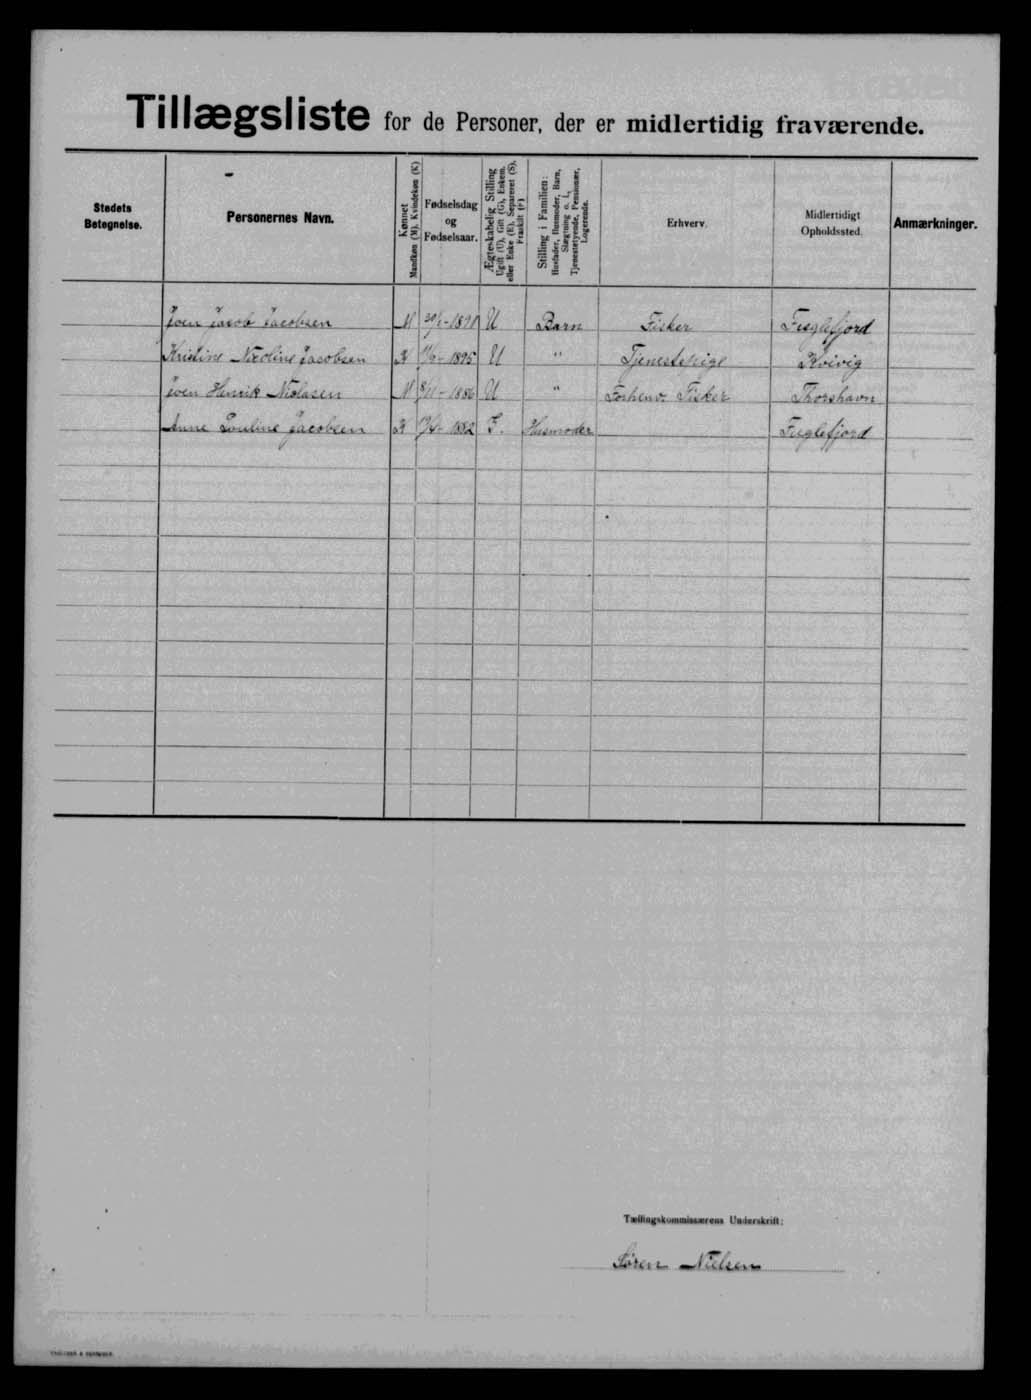 Tillægsliste for de Personer, der er midlertidig fraværende.
Stedets Betegnelse.
Personernes Navn.
Kønnet
Mandkøn (M). Kvindekøn (K)
Fødselsdag og Fødselsaar.
Ægteskabelig Stilling
Ugift (U), Gift (G), Enkem. eller Enke (E), Separeret (S), Fraskilt (F)
Stilling i Familien:
Husfader, Husmoder, Barn, Slægtning o. l., Tjenestetyende, Pensionær, Logerende.
Erhverv.
Midlertidigt Opholdssted.
Anmærkninger.
Joen Jacob Jacobsen M 1891 U Barn Fisker Fuglefjord
Kristine Nicoline Jacobsen K 1895 U " Tjenestepige Kvivig
Joen Henrik Niclasen M 8/11-1886 U " Forhenv. Fisker Thorshavn
Anne Pouline Jacobsen K 1882 Husmoder Fuglefjord
Tællingskommissærens Underskrift:
Søren Nielsen